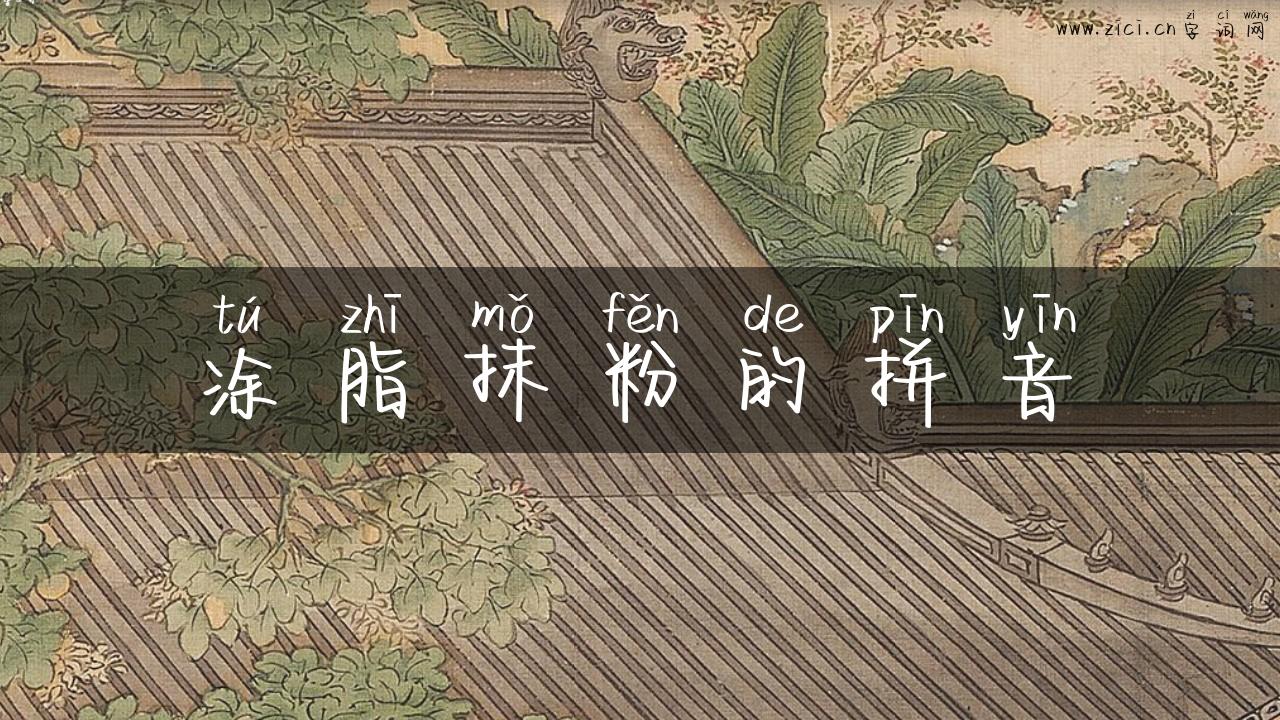 zì cí wǎng
www.zici.cn字词网
tú zhī mǒ fěn de pīn yīn
涂脂抹粉的拼音